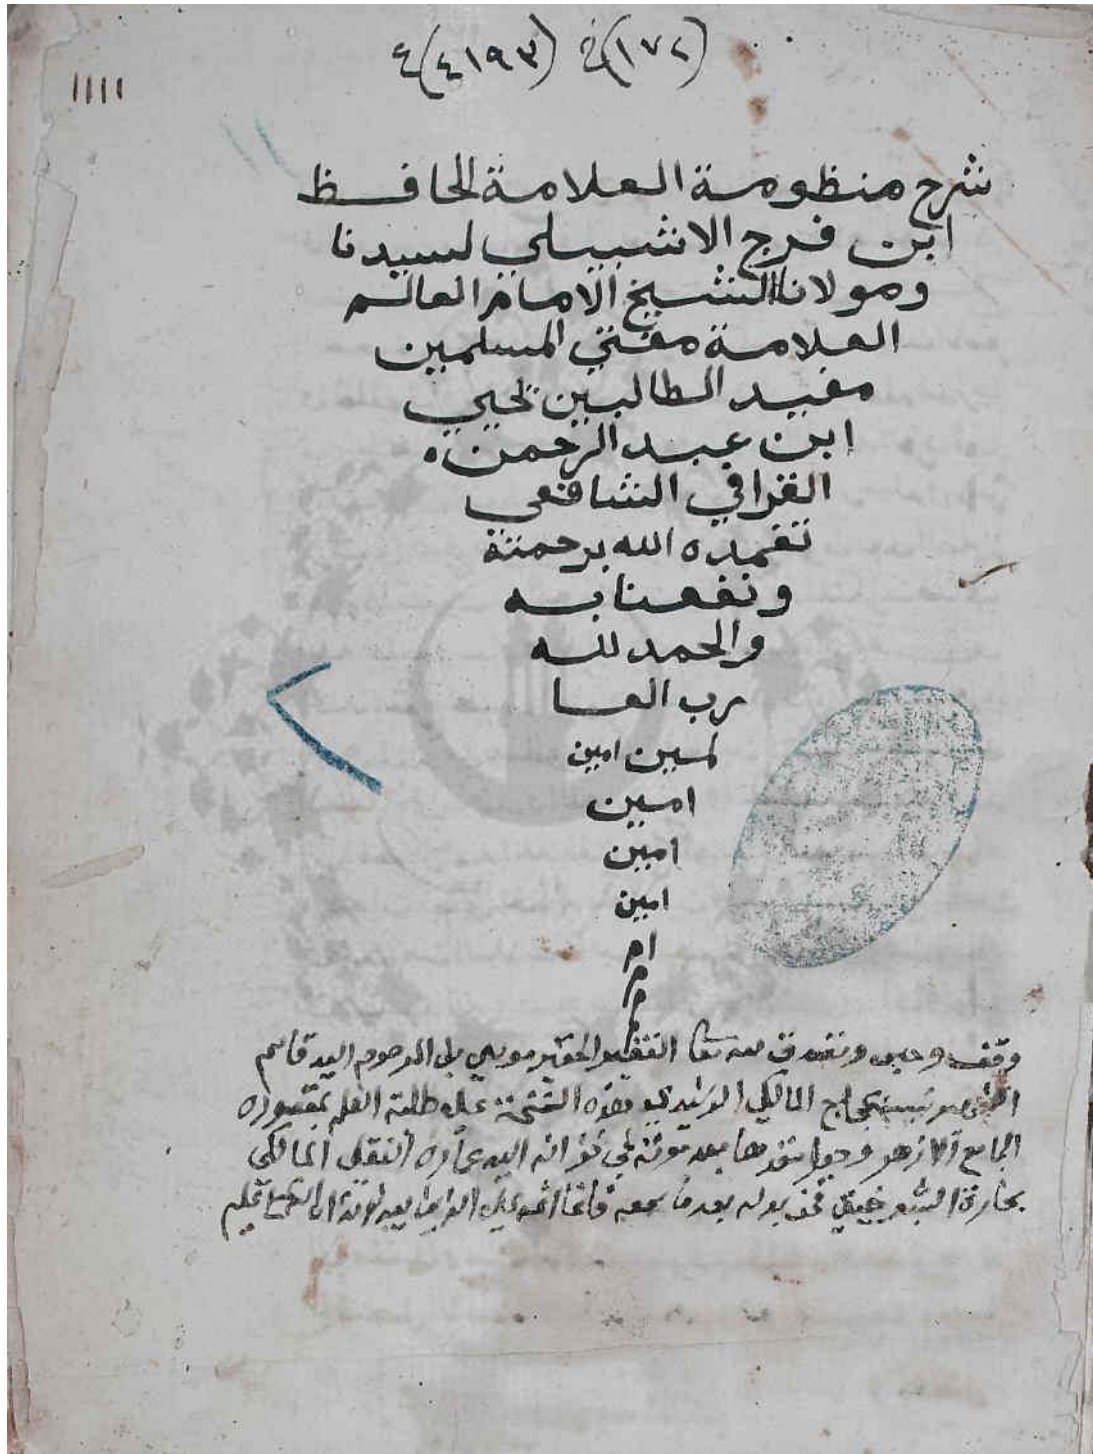 (١٧٢) خ (٤١٩٣) ع
١١١١
شرح منظومة العلامة الحافظ
ابن فرج الاشبيلي لسيدنا
ومولانا الشيخ الامام العالم
العلامة مفتي المسلمين
مفيد الطالبين يحيي
ابن عبد الرحمن
القرافي الشافعي
تغمده الله برحمته
ونفعنا به
والحمد لله
رب العا
لمين امين
امين
امين
امين
ام
م
م
وقف وحبس وتصدق لله تعا الفقير الحقير موسي المرحوم السيد قاسم
المالكي هذه النسخة على طلبة العلم بمقصورة
الجامع الازهر السيد عماره المالكي
بحارة فمن بدله بعد ما سمعه فانما اثمه على الذين يبدلونه ان الله سميع عليم